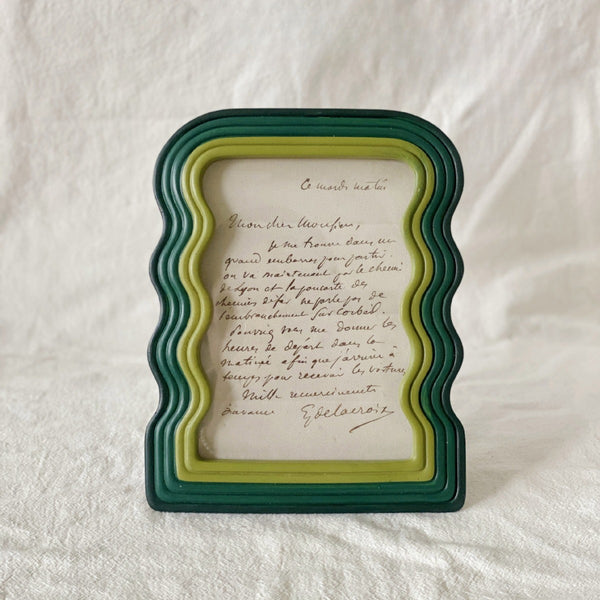 Ce mardi matin
Mon cher Monsieur,
je me trouve dans un
grand embarras pour partir.
on va maintenant par le chemin
de Lyon et la pancarte des
chemins de fer ne parle pas de
l'embranchement sur Corbeil.
Pourriez vous me donner les
heures de depart dans la
matinée afin que j'arrive à
temps pour recevoir les voitures
Mille remerciements
EugDelacroix